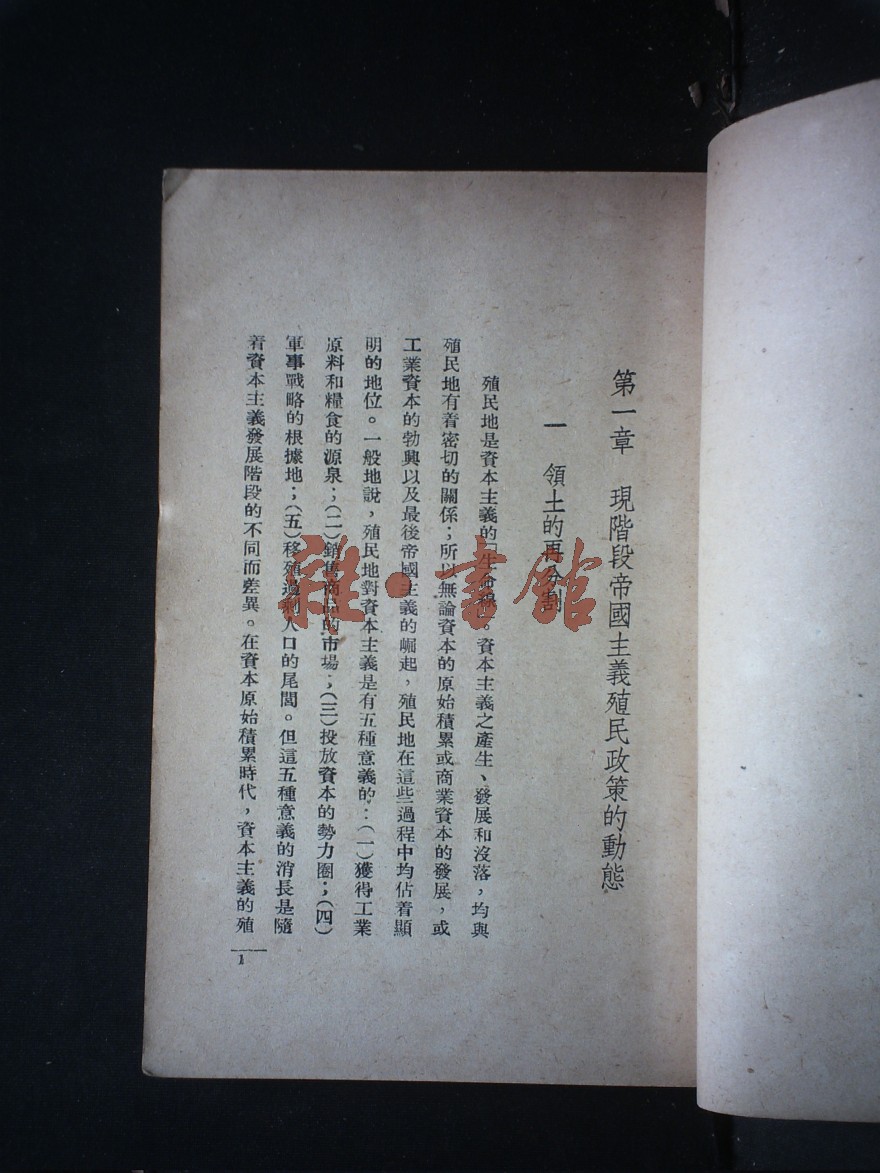 第一章　現階段帝國主義殖民政策的動態
一　領土的再分割
殖民地是資本主義的「生命線」。資本主義之產生、發展和沒落，均與
殖民地有着密切的關係；所以無論資本的原始積累或商業資本的發展，或
工業資本的勃興以及最後帝國主義的崛起，殖民地在這些過程中均佔着顯
明的地位。一般地說，殖民地對資本主義是有五種意義的：（一）獲得工業
原料和糧食的源泉；（二）銷售商品的市場；（三）投放資本的勢力圈；（四）
軍事戰略的根據地；（五）移殖過剩人口的尾閭。但這五種意義的消長是隨
着資本主義發展階段的不同而差異。在資本原始積累時代，資本主義的殖
1
雜·書館